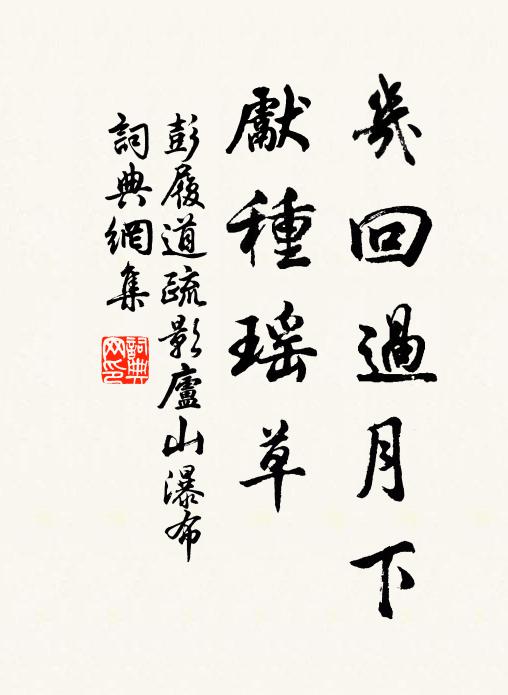 幾回過月下
獻種瑶草
彭履道疏影廬山瀑布
詞典網集
詞典網印